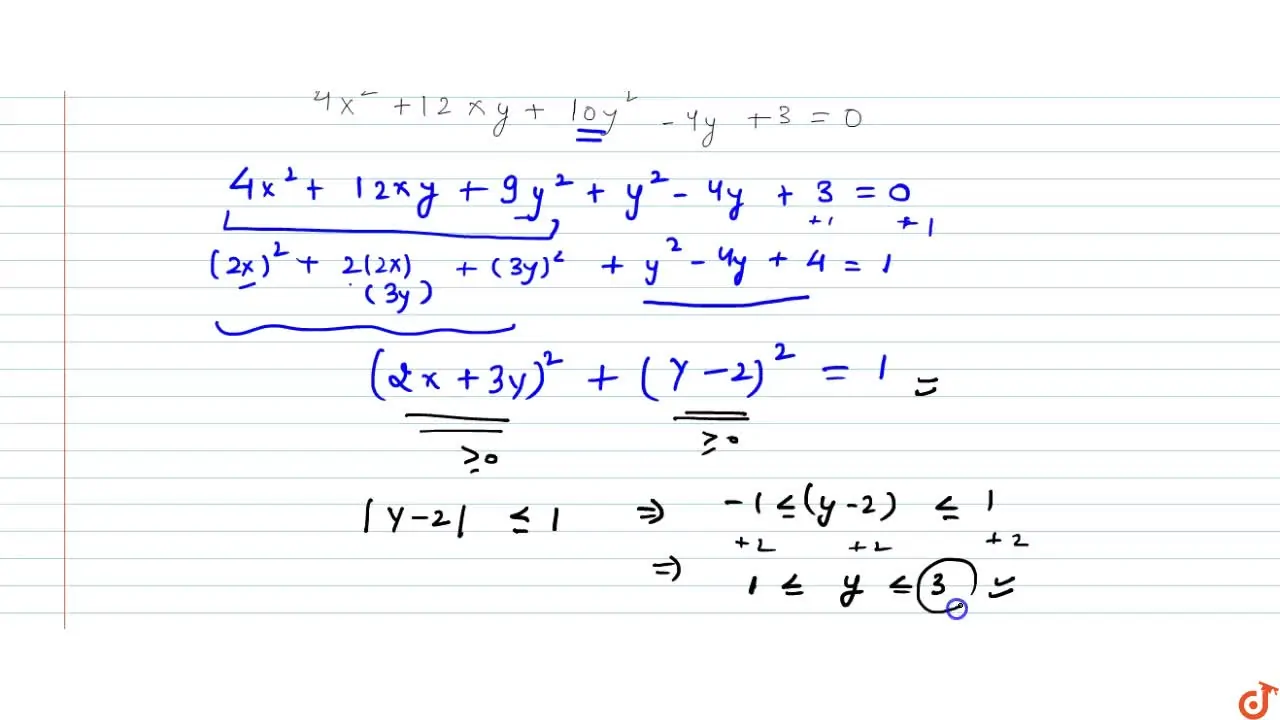 4x² + 12xy + 10y² - 4y + 3 = 0
4x² + 12xy + 9y² + y² - 4y + 3 = 0
+1 +1
(2x)² + 2(2x) + (3y)² + y² - 4y + 4 = 1
(3y)
(2x + 3y)² + (y - 2)² = 1
≥0 ≥0
|y-2| ≤ 1 ⇒ -1 ≤ (y-2) ≤ 1
+2 +2 +2
⇒ 1 ≤ y ≤ 3